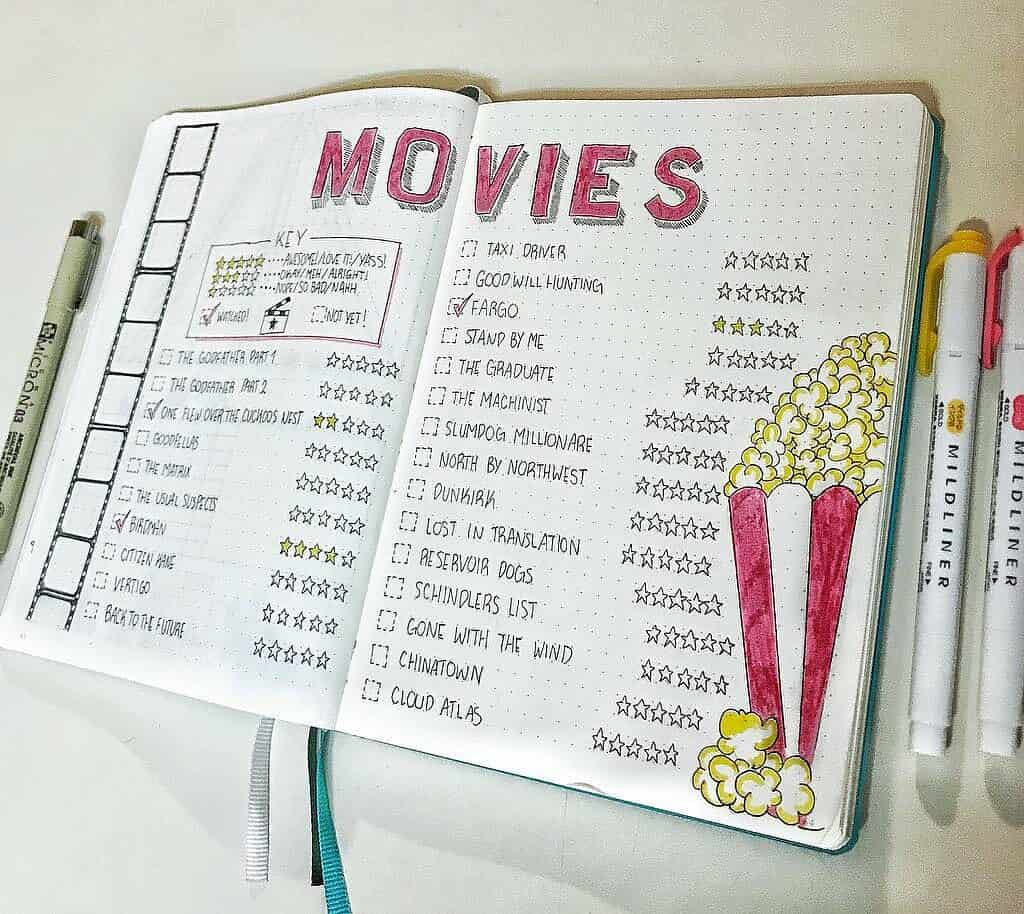 MOVIES
KEY
....AWESOME!/LOVE IT!/YASS!
....OKAY/MEH/ALRIGHT!
....NOPE/SO BAD/NAHH
WATCHED!
NOT YET!
THE GODFATHER PART 1
THE GODFATHER PART 2
ONE FLEW OVER THE CUCKOOS NEST
GOODFELLAS
THE MATRIX
THE USUAL SUSPECTS
BIRDMAN
CITIZEN KANE
VERTIGO
BACK TO THE FUTURE
TAXI DRIVER
GOOD WILL HUNTING
FARGO
STAND BY ME
THE GRADUATE
THE MACHINIST
SLUMDOG MILLIONARE
NORTH BY NORTHWEST
DUNKIRK
LOST IN TRANSLATION
RESERVOIR DOGS
SCHINDLERS LIST
GONE WITH THE WIND
CHINATOWN
CLOUD ATLAS
MICRON 03
MILDLINER
MILDLINER